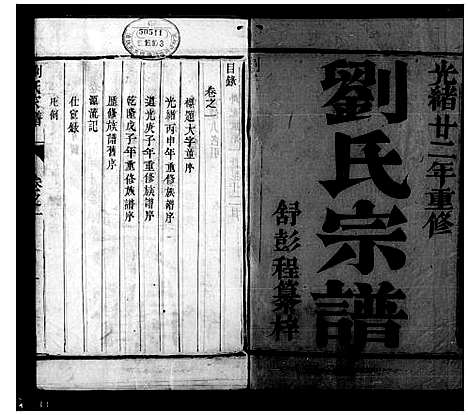 光緒廿二年重修
劉氏宗譜
舒彭程纂梓
目錄
卷之一
標題大字並序
光緒丙申年重修族譜序
道光庚子年重修族譜序
乾隆戊子年重修族譜序
歷修族譜舊序
源流記
仕宦錄
凡例
50511